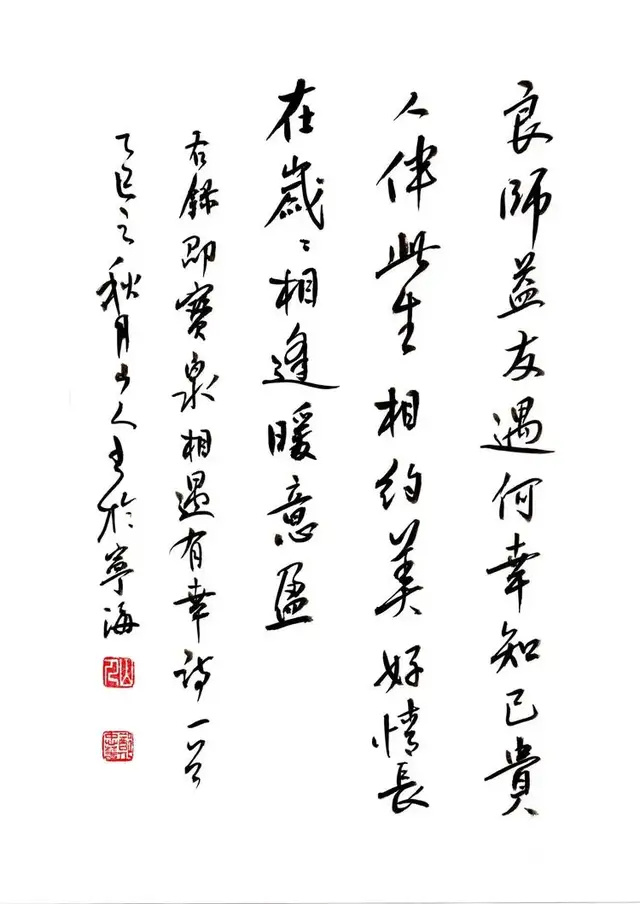 良師益友遇何幸知己貴
人伴此生相約美好情長
在歲〻相逢暖意盈
右錄即寶泉相遇有幸詩一首
乙巳之秋月山人書於寧海